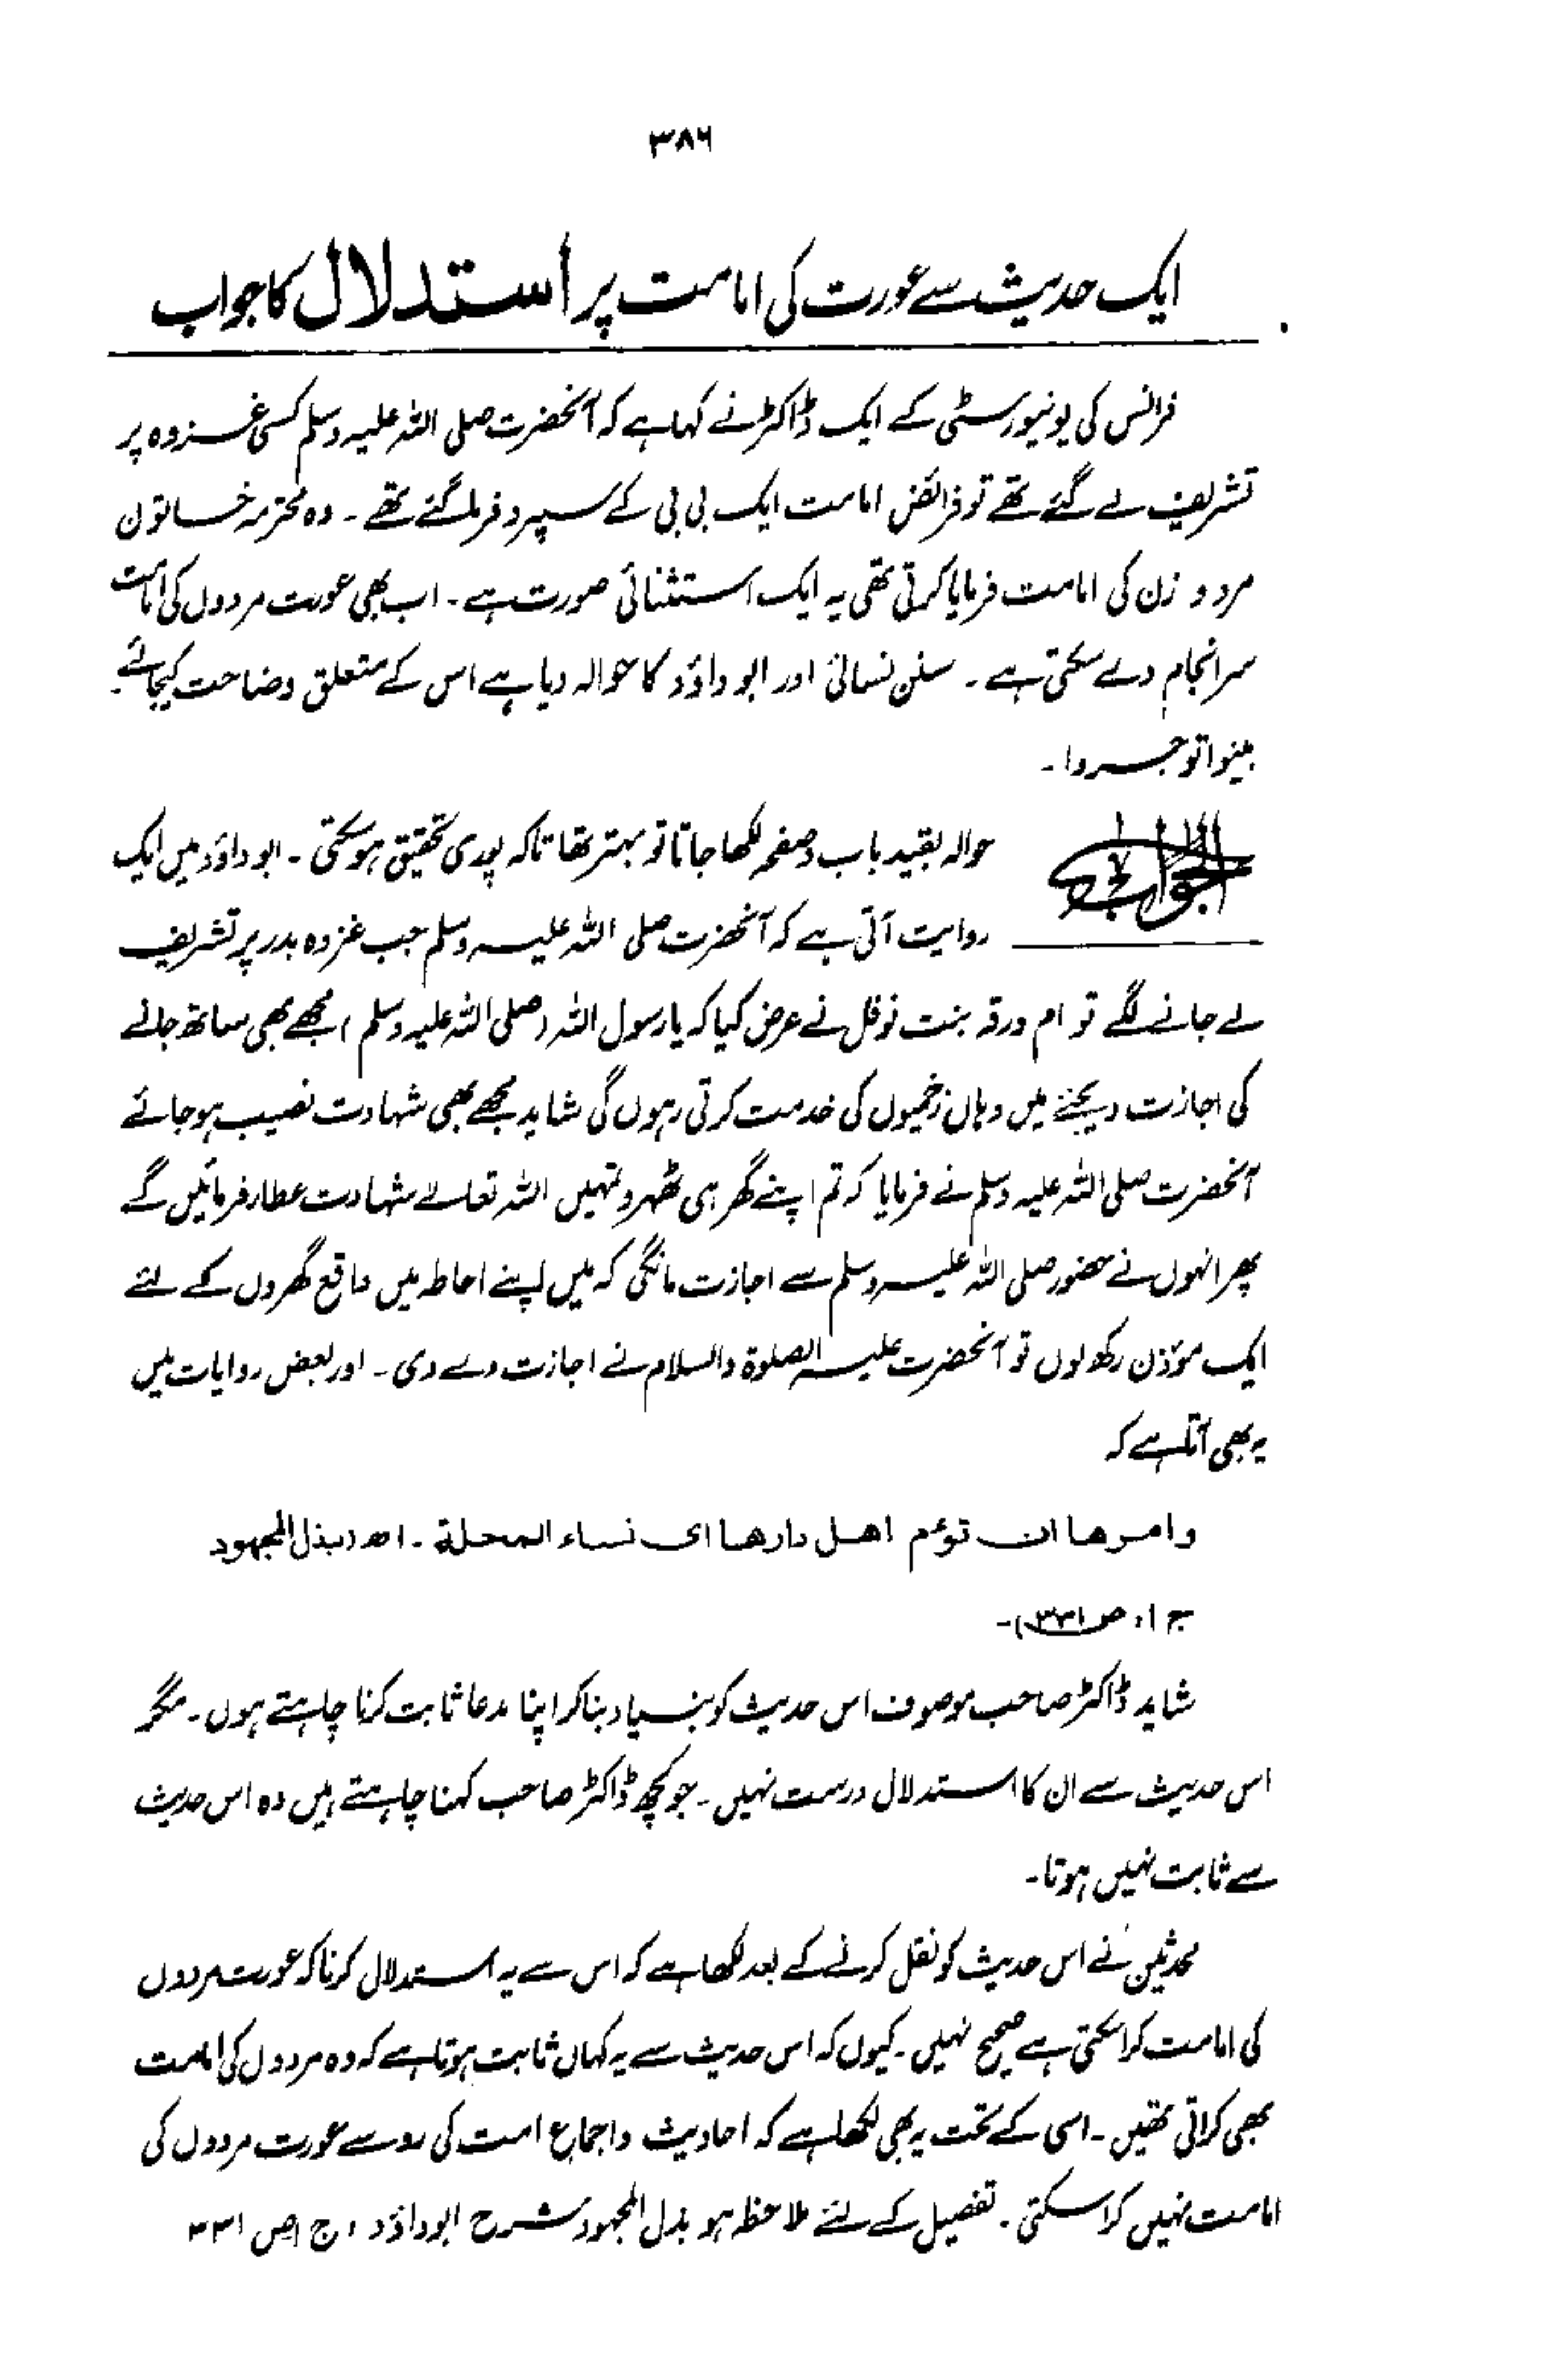 ۳۸۶
ایک حدیث سے عورت کی امامت پر استدلال کا جواب
فرانس کی یونیورسٹی کے ایک ڈاکٹر نے کہا ہے کہ آنحضرت صلی اللہ علیہ وسلم کسی غزوہ پر
تشریف لے گئے تھے تو فرائض امامت ایک بی بی کے سپرد فرما گئے تھے ۔ وہ محترمہ خاتون
مرد و زن کی امامت فرمایا کرتی تھی یہ ایک استثنائی صورت ہے ۔ اب بھی عورت مردوں کی امامت
سرانجام دے سکتی ہے ۔ سنن نسائی اور ابو داؤد کا حوالہ دیا ہے اس کے متعلق وضاحت کیجائے
بینوا توجروا ۔
الجواب
حوالہ بقید باب وصفحہ لکھا جاتا تو بہتر تھا تاکہ پوری تحقیق ہو سکتی ۔ ابو داؤد میں ایک
روایت آتی ہے کہ آنحضرت صلی اللہ علیہ وسلم جب غزوہ بدر پر تشریف
لے جانے لگے تو ام ورقہ بنت نوفل نے عرض کیا کہ یا رسول اللہ (صلی اللہ علیہ وسلم) مجھے بھی ساتھ جانے
کی اجازت دیجئے میں وہاں زخمیوں کی خدمت کرتی رہوں گی شاید مجھے بھی شہادت نصیب ہو جائے
آنحضرت صلی اللہ علیہ وسلم نے فرمایا کہ تم اپنے گھر ہی ٹھہرو تمہیں اللہ تعالےٰ شہادت عطاء فرمائیں گے
پھر انہوں نے حضور صلی اللہ علیہ وسلم سے اجازت مانگی کہ میں اپنے احاطہ میں واقع گھروں کے لئے
ایک مؤذن رکھ لوں تو آنحضرت علیہ الصلوۃ والسلام نے اجازت دے دی ۔ اور بعض روایات میں
یہ بھی آتا ہے کہ
وامرھا ان تؤم اھل دارھا ای نساء المحلة ۔ اھ (بذل المجہود
ج ۱، ص ۳۳۱)۔
شاید ڈاکٹر صاحب موصوف اس حدیث کو بنیاد بنا کر اپنا مدعا ثابت کرنا چاہتے ہوں ۔ مگر
اس حدیث سے ان کا استدلال درست نہیں ۔ جو کچھ ڈاکٹر صاحب کہنا چاہتے ہیں وہ اس حدیث
سے ثابت نہیں ہوتا ۔
محدثین نے اس حدیث کو نقل کرنے کے بعد لکھا ہے کہ اس سے یہ استدلال کرنا کہ عورت مردوں
کی امامت کرا سکتی ہے صحیح نہیں ۔ کیوں کہ اس حدیث سے یہ کہاں ثابت ہوتا ہے کہ وہ مردوں کی امامت
بھی کراتی تھیں ۔ اسی کے تحت یہ بھی لکھا ہے کہ احادیث واجماع امت کی رو سے عورت مردوں کی
امامت نہیں کرا سکتی ۔ تفصیل کے لئے ملاحظہ ہو بذل المجہود شرح ابو داؤد ، ج ۱ ص ۳۳۱